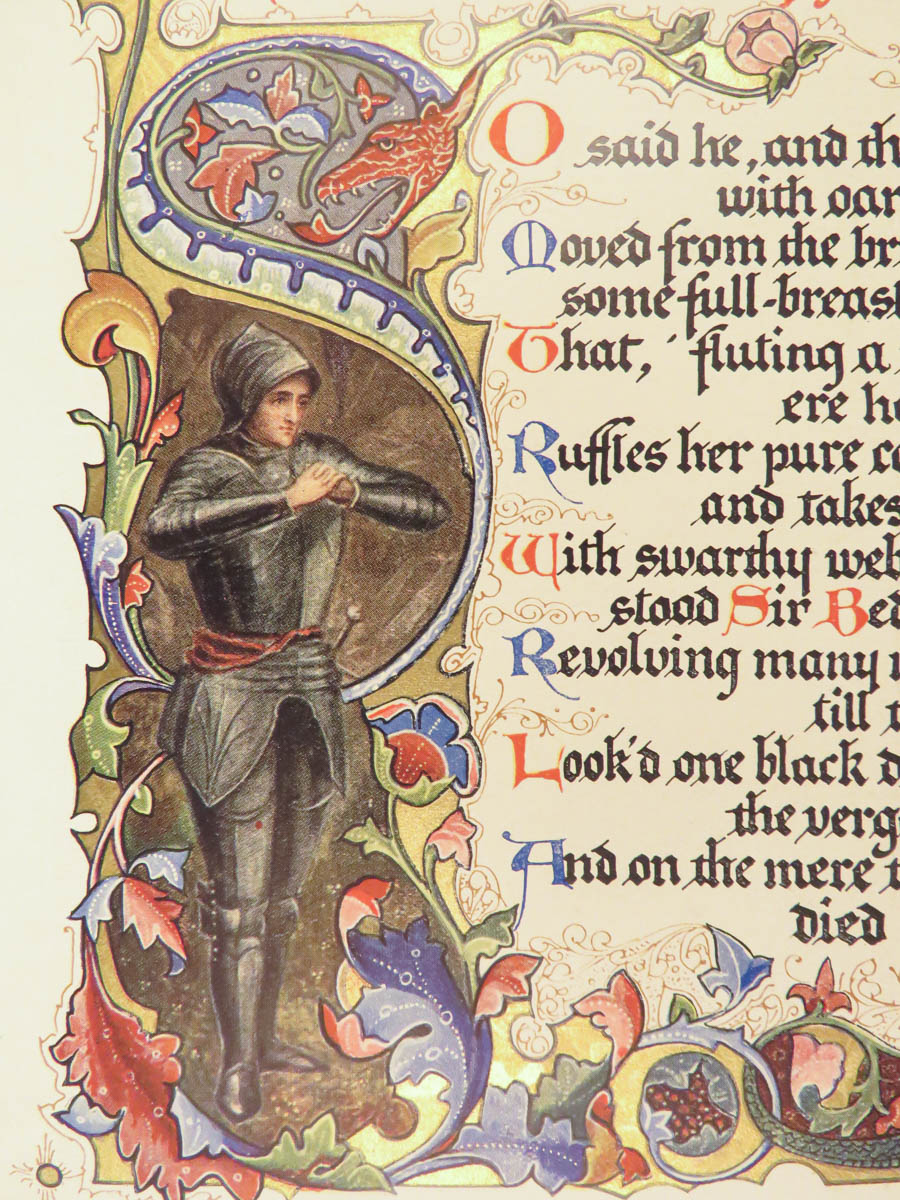 SO said he, and th
with oar
Moved from the br
some full-breast
That, fluting a
ere he
Ruffles her pure co
and takes
With swarthy web
stood Sir Bed
Revolving many
till t
Look'd one black d
the verg
And on the mere t
died